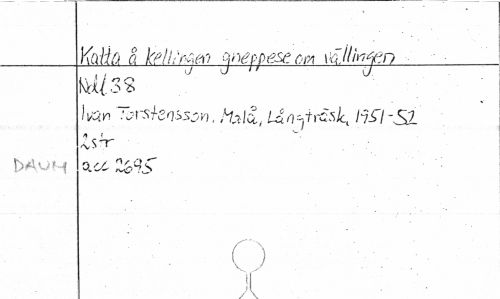 Katta å kellingen gneppese om vällingen
Ndl 38
Ivan Torstensson. Malå, Långträsk, 1951-52
2 str
DAUM acc 2695